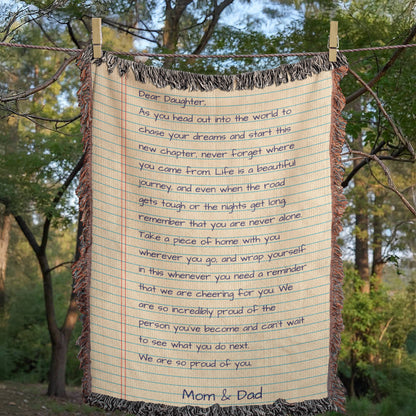 Dear Daughter,
As you head out into the world to
chase your dreams and start this
new chapter, never forget where
you came from. Life is a beautiful
journey, and even when the road
gets tough or the nights get long,
remember that you are never alone.
Take a piece of home with you
wherever you go, and wrap yourself
in this whenever you need a reminder
that we are cheering for you. We
are so incredibly proud of the
person you've become and can't wait
to see what you do next.
We are so proud of you.
Mom & Dad